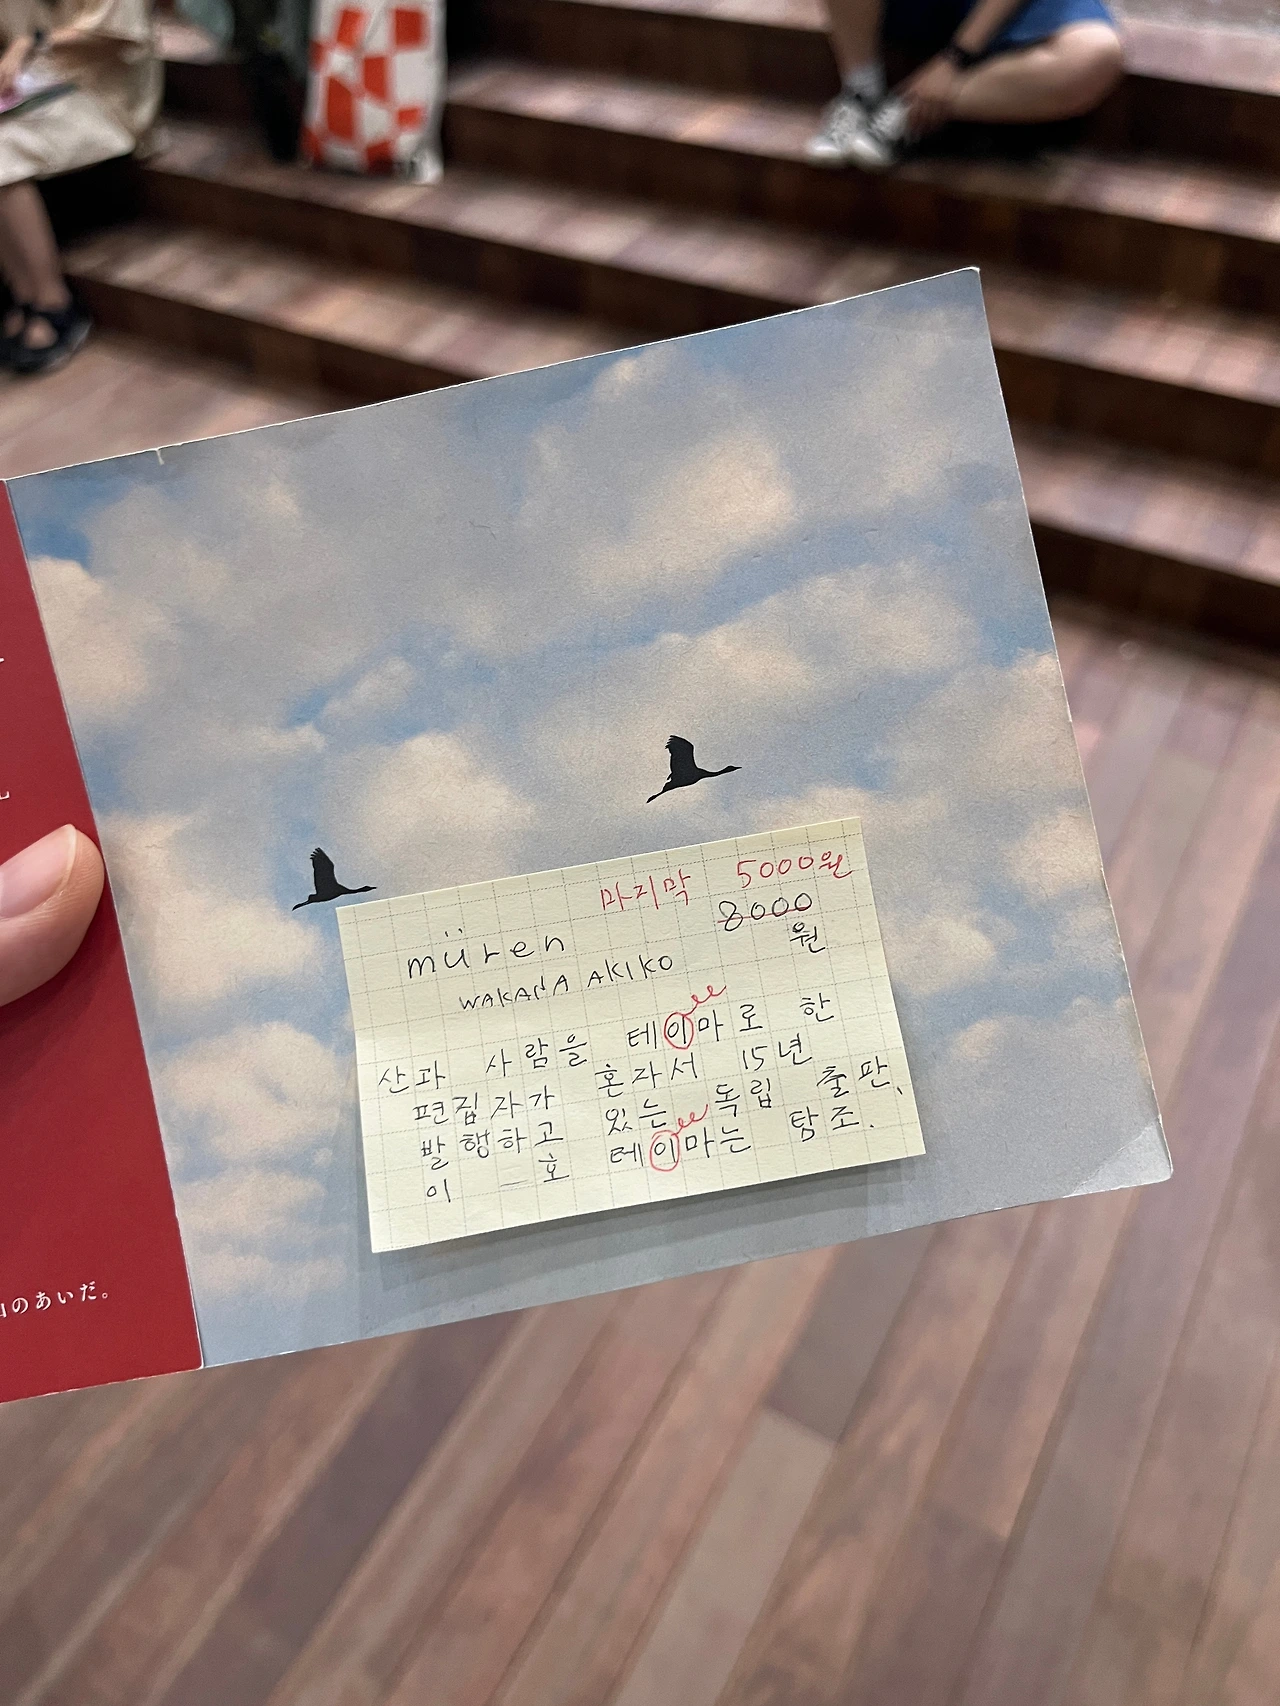 마지막 5000원
8000
원
müren
WAKANA AKIKO
산과 사람을 테이마로 한
편집자가 혼자서 15년
발행하고 있는 독립 출판.
이 一호 테이마는 탐조.
のあいだ。